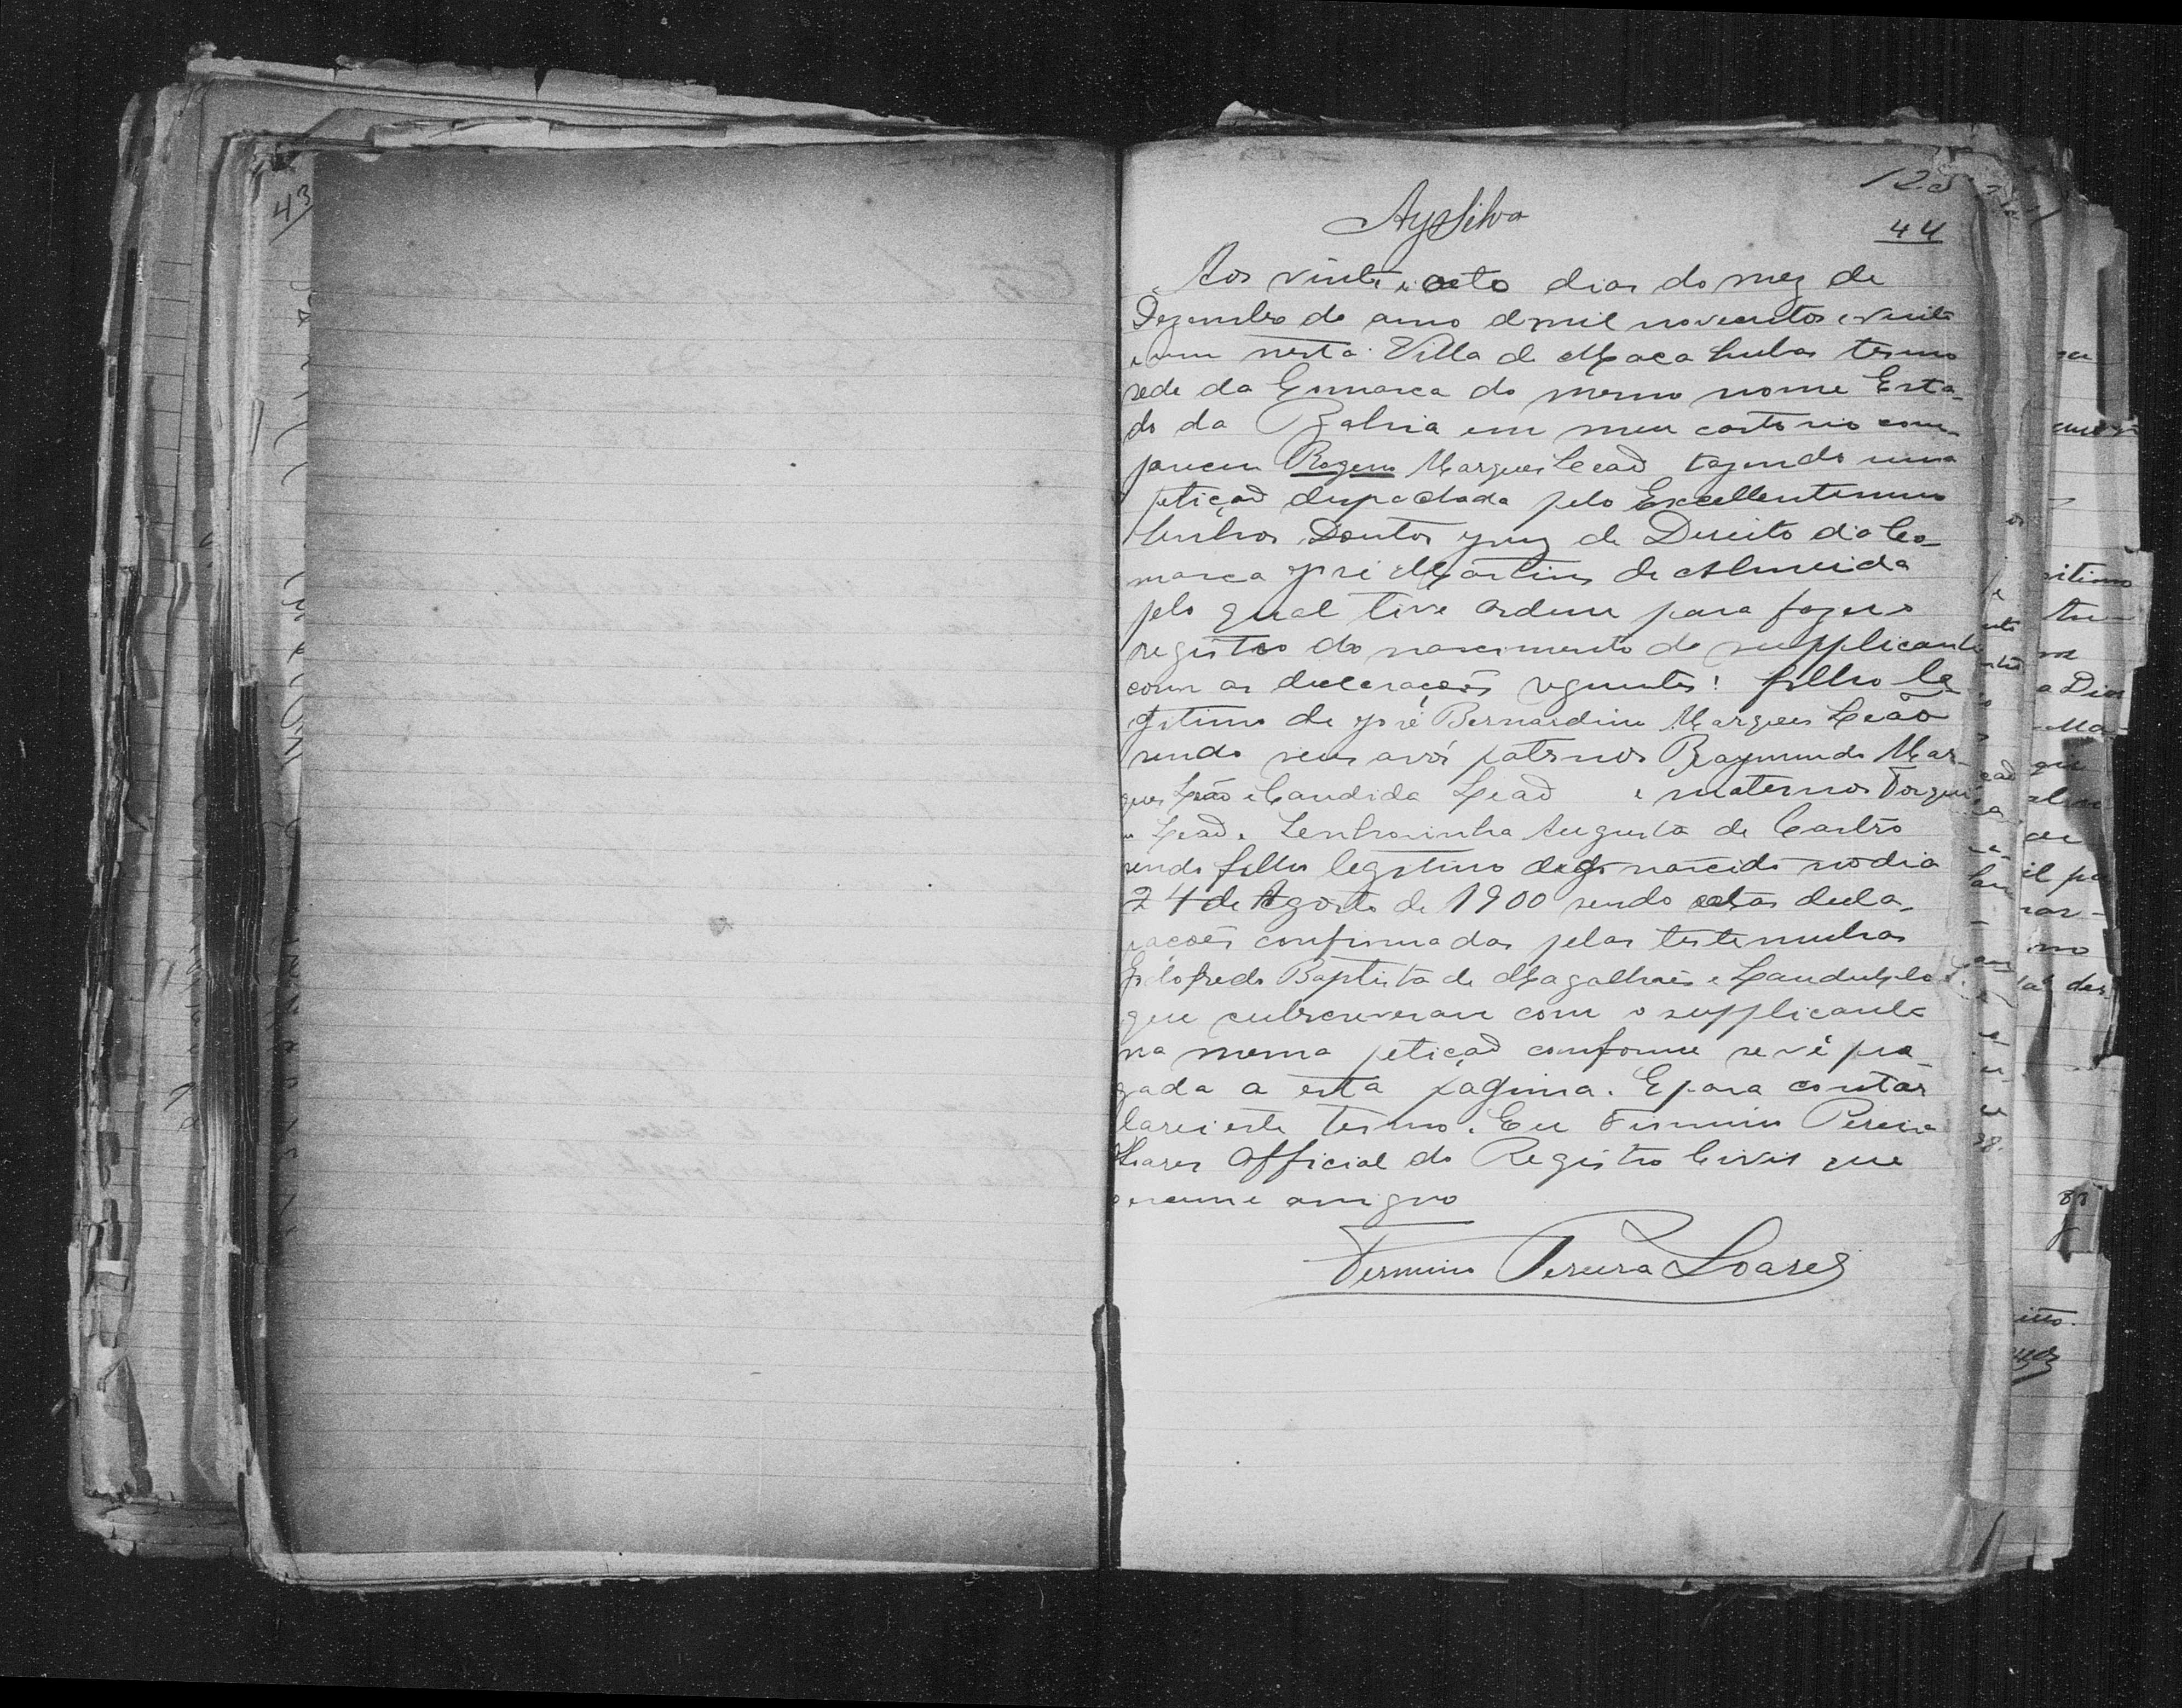 43
128
AySilva
44
Aos vinte e oito dias do mez de
Dezembro do anno d mil novecentos e vinte
e um nesta Villa de Macahubas termo
sede da Comarca do mesmo nome Esta-
do da Bahia em meu cartorio com-
pareceu Rogerio Marques Leão trazendo uma
petição despachada pelo Excellentissimo
Senhor Doutor Juiz de Direito da Co-
marca José Martins de Almeida
pelo qual tive ordem para fazer o
registro do nascimento do supplicante
com as declarações seguintes: filho le
gitimo de José Bernardino Marques Leão
sendo seus avós paternos Raymundo Mar-
ques Leão e Candida Leão e maternos
Leão e Senhorinha Augusta de Castro
sendo filho legitimo nascido no dia
24 de Agosto de 1900 sendo estas decla-
rações confirmadas pelas testemunhas
Baptista de Magalhães e Landulpho
que subscreveram com o supplicante
na mesma petição conforme se vê pre
gada a esta pagina. E para constar
larei este termo. Eu Firmino Pereira
Soares Official do Registro Civil que
escrevi e assigno
Firmino Pereira Soares